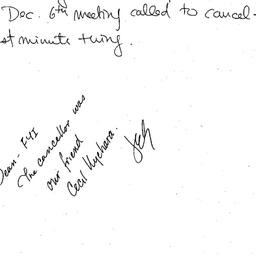 Dec. 6th meeting called to cancel-
st minute thing.
Dean - FYI
The cancellor was
our friend
Cecil